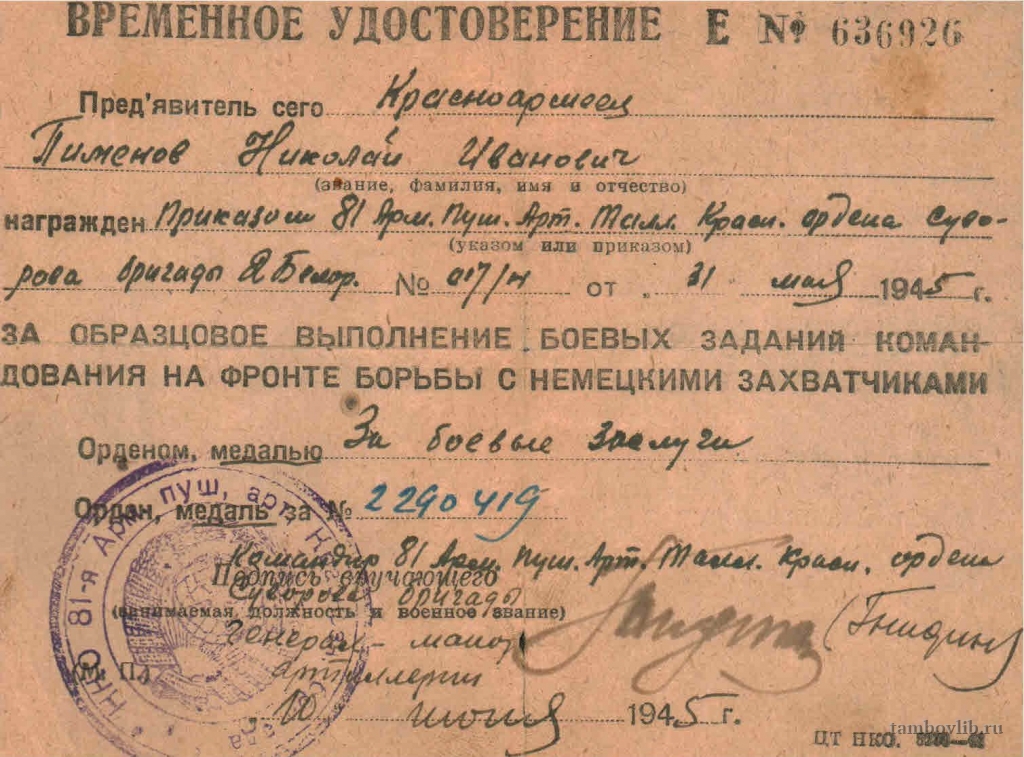 ВРЕМЕННОЕ УДОСТОВЕРЕНИЕ Е № 636926
Пред'явитель сего Красноармеец
Пименов Николай Иванович
(звание, фамилия, имя и отчество)
награжден Приказом 81 Арм. Пуш. Арт. Талл. Красн. ордена Суво-
(указом или приказом)
рова бригады 2 Белор. № 017/н от 31 мая 1945 г.
ЗА ОБРАЗЦОВОЕ ВЫПОЛНЕНИЕ БОЕВЫХ ЗАДАНИЙ КОМАН-
ДОВАНИЯ НА ФРОНТЕ БОРЬБЫ С НЕМЕЦКИМИ ЗАХВАТЧИКАМИ
Орденом, медалью За боевые заслуги
Орден, медаль за № 2290419
Командир 81 Арм. Пуш. Арт. Талл. Красн. ордена
Подпись вручающего
Суворова бригады
(занимаемая должность и военное звание)
Генерал-майор
артиллерии
(М. П.)
10 июня 1945 г.
81-я Арм. пуш. арт.
НКО
ЦТ НКО.
tamboylib.ru